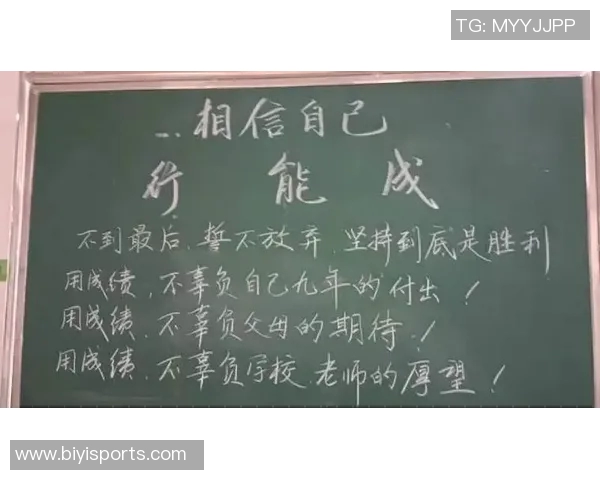 TG: MYYJJPP
... 相信自己
行 能 成
不到最后,誓不放弃,坚持到底是胜利
用成绩,不辜负自己九年的付出!
用成绩,不辜负父母的期待!
用成绩,不辜负学校、老师的厚望!
www.biyisports.com